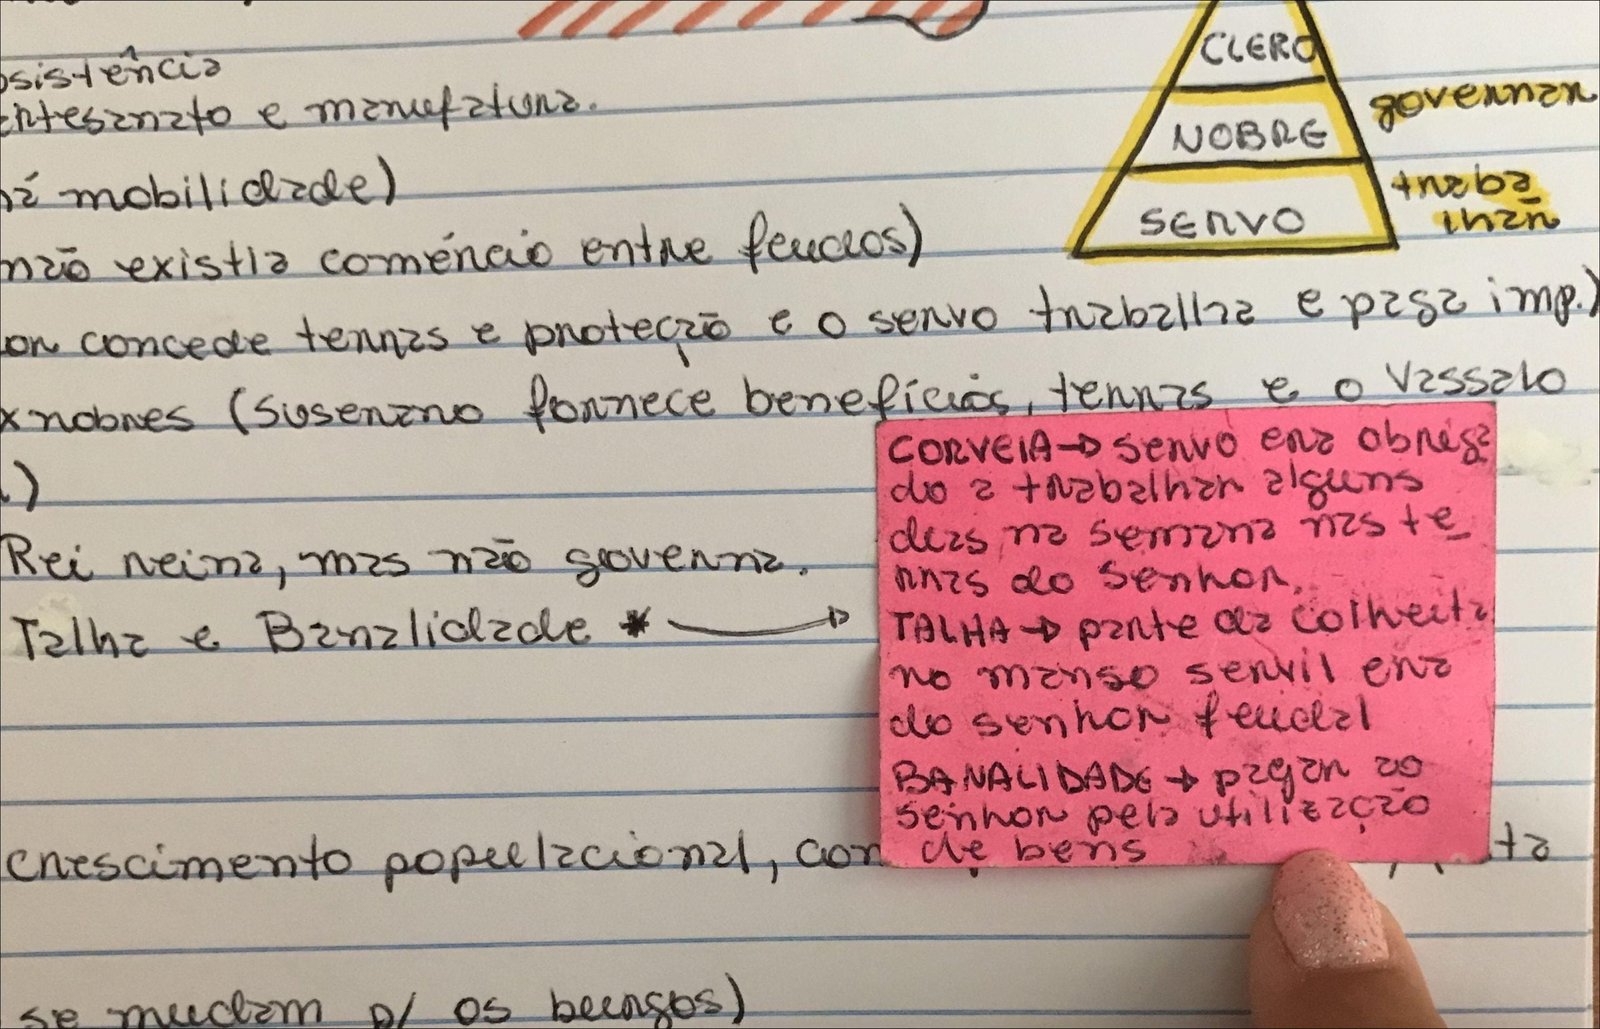 CLERO
governar
NOBRE
traba
lhar
SERVO
sistência
artesanato e manufatura.
mobilidade)
não existia comércio entre feudos)
concede terras e proteção e o servo trabalha e paga imp.)
x nobres (Suserano fornece benefícios, terras e o vassalo
.)
Rei reina, mas não governa.
Talha e Banalidade *
CORVEIA → servo era obriga
do a trabalhar alguns
dias na semana nas te_
rras do senhor.
TALHA → parte da colheita
no manso servil era
do senhor feudal
BANALIDADE → pagar ao
senhor pela utilização
de bens
crescimento populacional, con
ta
se mudam p/ os burgos)